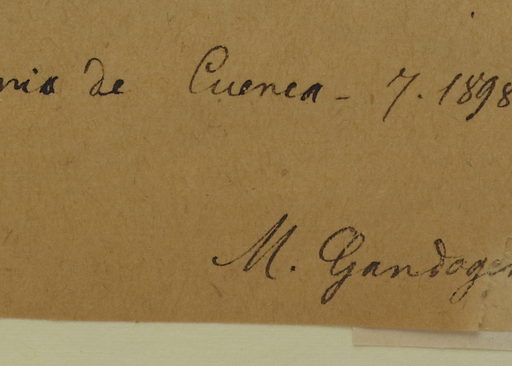 nia de Cuenca - 7. 1898
M. Gandoger